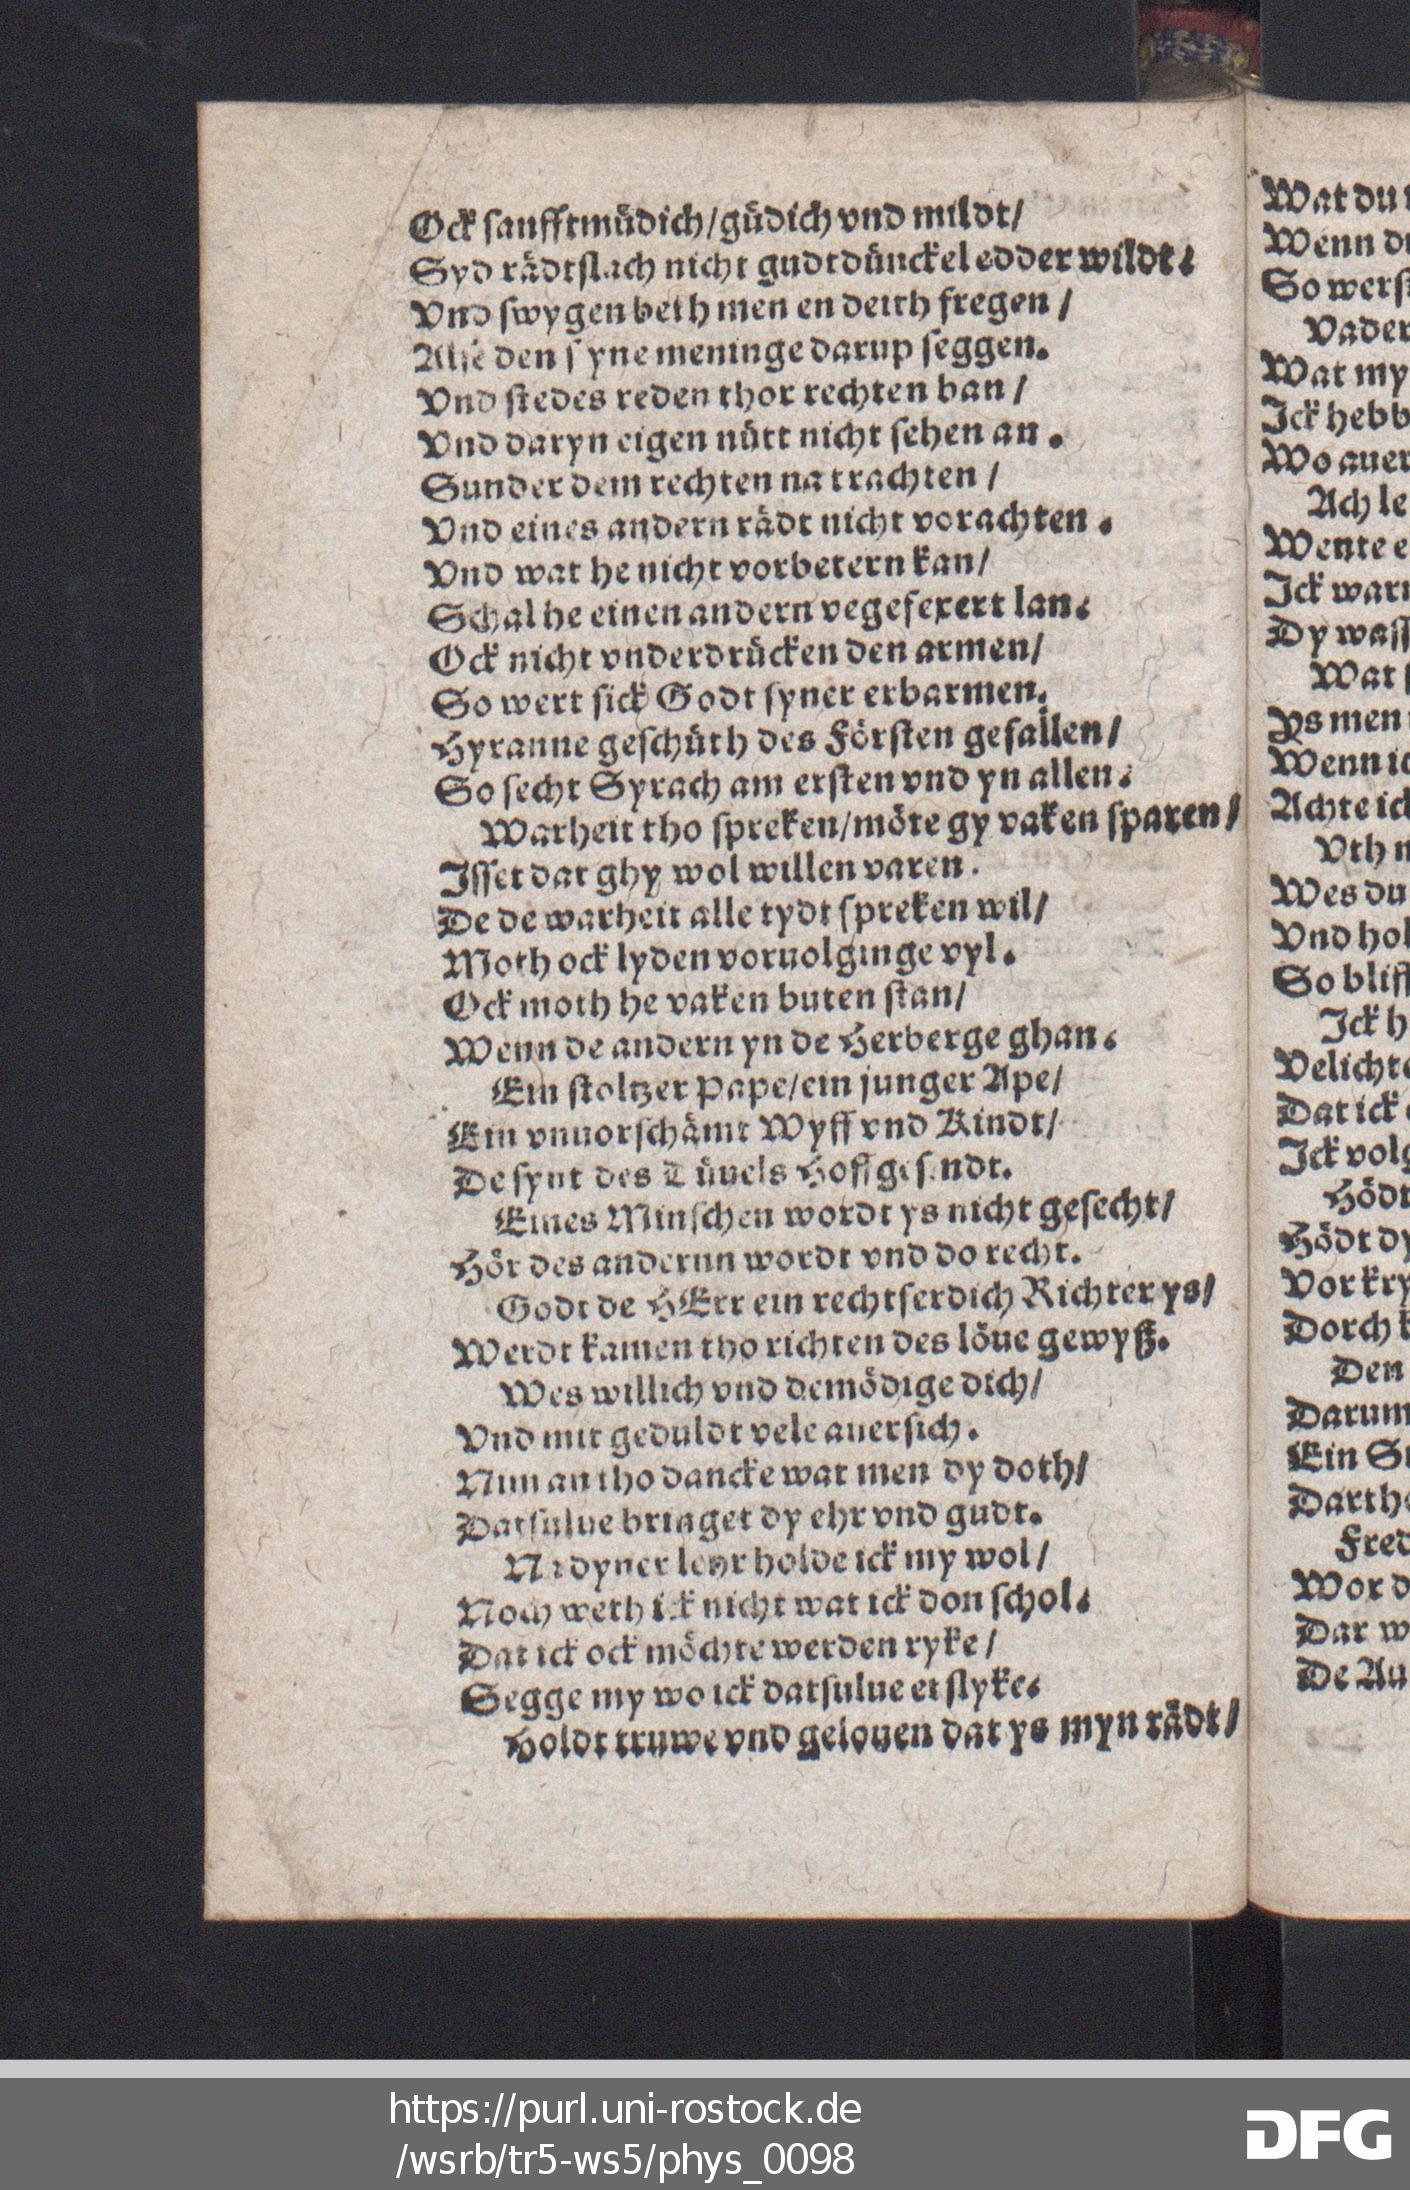 Ock sanfftmüdich/güdich vnd mildt/
Syd rädtslach nicht gudtdünckel edder wildt.
Vnd swygen beth men en deith fregen /
Alse den syne meninge darup seggen.
Vnd stedes reden thor rechten ban /
Vnd daryn eigen nütt nicht sehen an .
Sunder dem rechten na trachten /
Vnd eines andern rädt nicht vorachten .
Vnd wat he nicht vorbetern kan/
Schal he einen andern vegeferert lan.
Ock nicht vnderdrücken den armen/
So wert sick Godt syner erbarmen.
Hyranne geschüth des Försten gefallen/
So secht Syrach am ersten vnd yn allen.
Warheit tho spreken/möte gy vaken sparen/
Isset dat ghy wol willen varen.
De de warheit alle tydt spreken wil/
Moth ock lyden voruolginge vyl.
Ock moth he vaken buten stan/
Wenn de andern yn de Herberge ghan.
Ein stoltzer Pape/ein junger Ape/
Ein vnuorschämt Wyff vnd Kindt/
De synt des Düuels Hoffgesindt.
Eines Minschen wordt ys nicht gesecht/
Hör des andernn wordt vnd do recht.
Godt de HErr ein rechtferdich Richter ys/
Werdt kamen tho richten des löue gewyß.
Wes willich vnd demödige dich/
Vnd mit geduldt vele auersich.
Nim an tho dancke wat men dy doth/
Datsulue bringet dy ehr vnd gudt.
Na dyner lehr holde ick my wol/
Noch weth ick nicht wat ick don schol.
Dat ick ock möchte werden ryke/
Segge my wo ick datsulue erslyke.
Holdt truwe vnd gelouen dat ys myn rädt/
Wat du
Wenn
So
Vader
Wat my
Ick hebb
Wo auer
Ach le
Wente e
Ick
Dy
Wat
Ys men
Wenn
Achte ick
Vth
Wes du
Vnd
So
Ick
Dat ick
Ick
Hödt dy
Vor
Dorch
Den
Darum
Ein
Wor
Dar
De
https://purl.uni-rostock.de
/wsrb/tr5-ws5/phys_0098
DFG